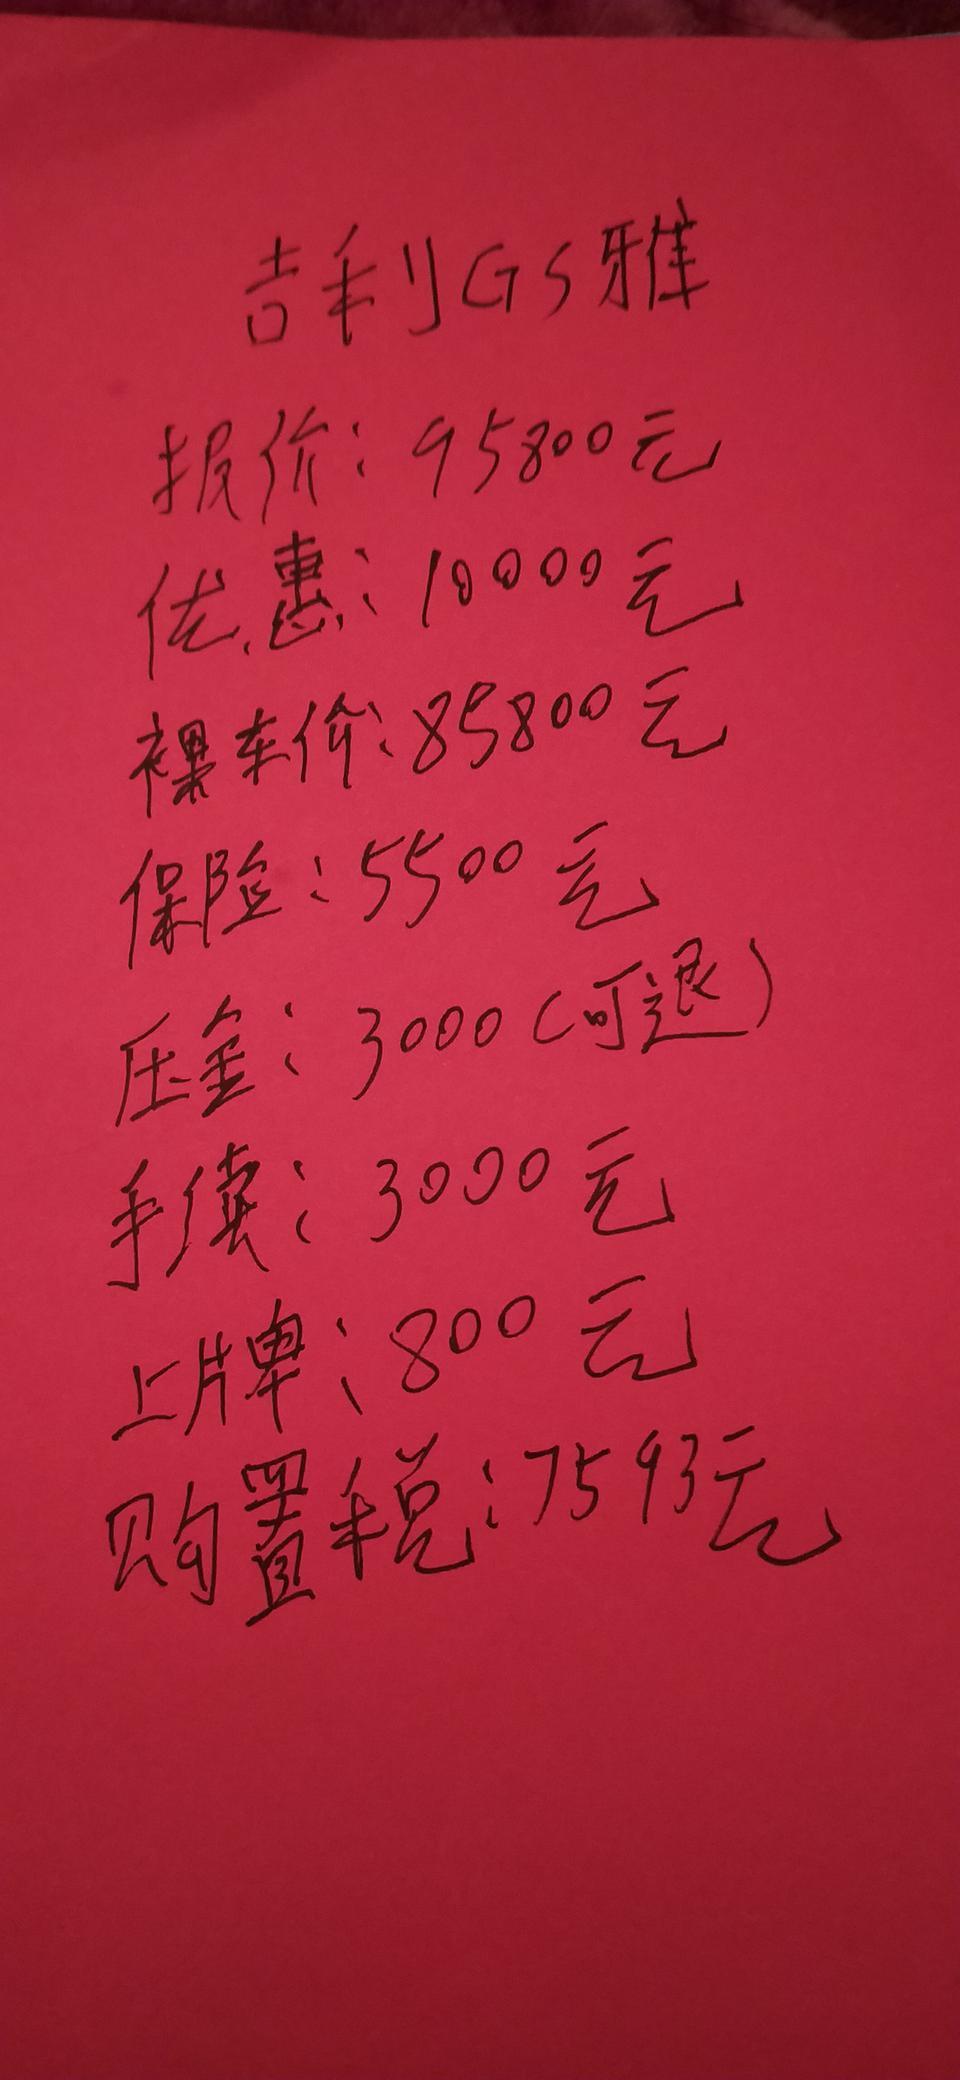 吉利GS雅
报价：95800元
优惠：10000元
裸车价：85800元
保险：5500元
压金：3000（可退）
手续：3000元
上牌：800元
购置税：7593元